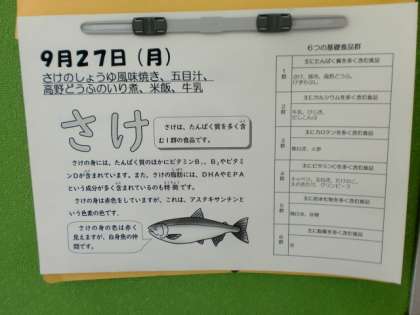 9月27日(月)
さけのしょうゆ風味焼き、五目汁、
高野どうふのいり煮、米飯、牛乳
さけ
さけは、たんぱく質を多く含
む1群の食品です。
さけの身には、たんぱく質のほかにビタミンB₁、B₂やビタミ
ンDが含まれています。また、さけの脂肪には、DHAやEPA
という成分が多く含まれているのも特徴です。
さけの身は赤色をしていますが、これは、アスタキサンチンと
いう色素の色です。
さけの身の色は赤く
見えますが、白身魚の仲
間です。
6つの基礎食品群
1群
主にたんぱく質を多く含む食品
さけ、豚肉、高野どうふ、
2群
主にカルシウムを多く含む食品
牛乳、ひじき、
3群
主にカロテンを多く含む食品
4群
主にビタミンCを多く含む食品
5群
主に炭水化物を多く含む食品
6群
主に脂肪を多く含む食品